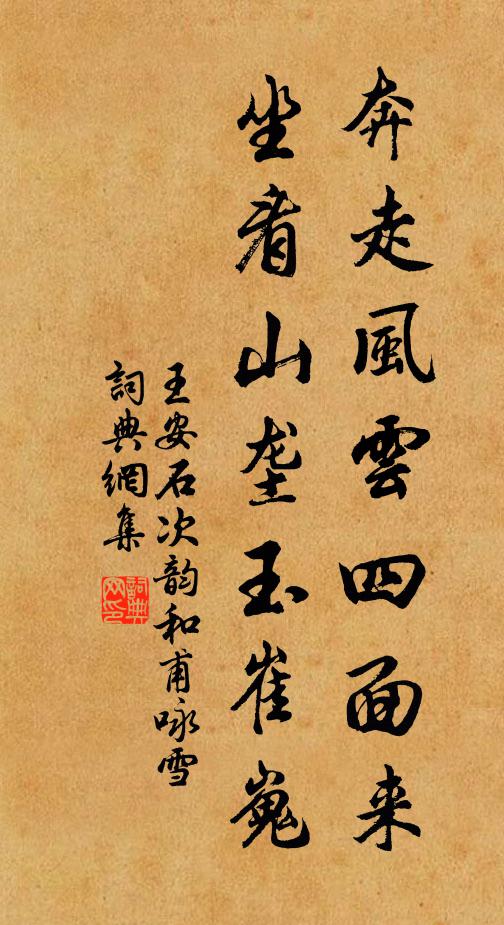 奔走風雲四面来
坐看山垄玉崔嵬
王安石次韵和甫咏雪
詞典網集
詞典網印